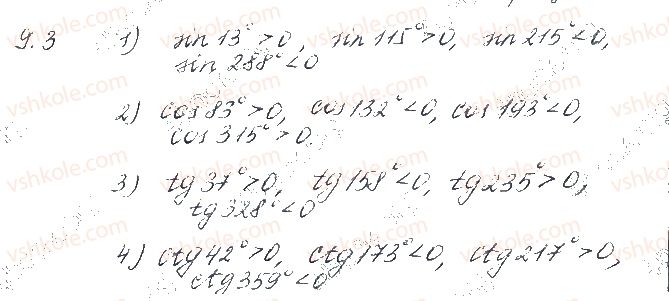 9.3 1) sin 13° > 0, sin 115° > 0, sin 215° < 0,
sin 288° < 0
2) cos 83° > 0, cos 132° < 0, cos 193° < 0,
cos 315° > 0.
3) tg 37° > 0, tg 158° < 0, tg 235° > 0,
tg 328° < 0
4) ctg 42° > 0, ctg 173° < 0, ctg 217° > 0,
ctg 359° < 0
vshkole.com